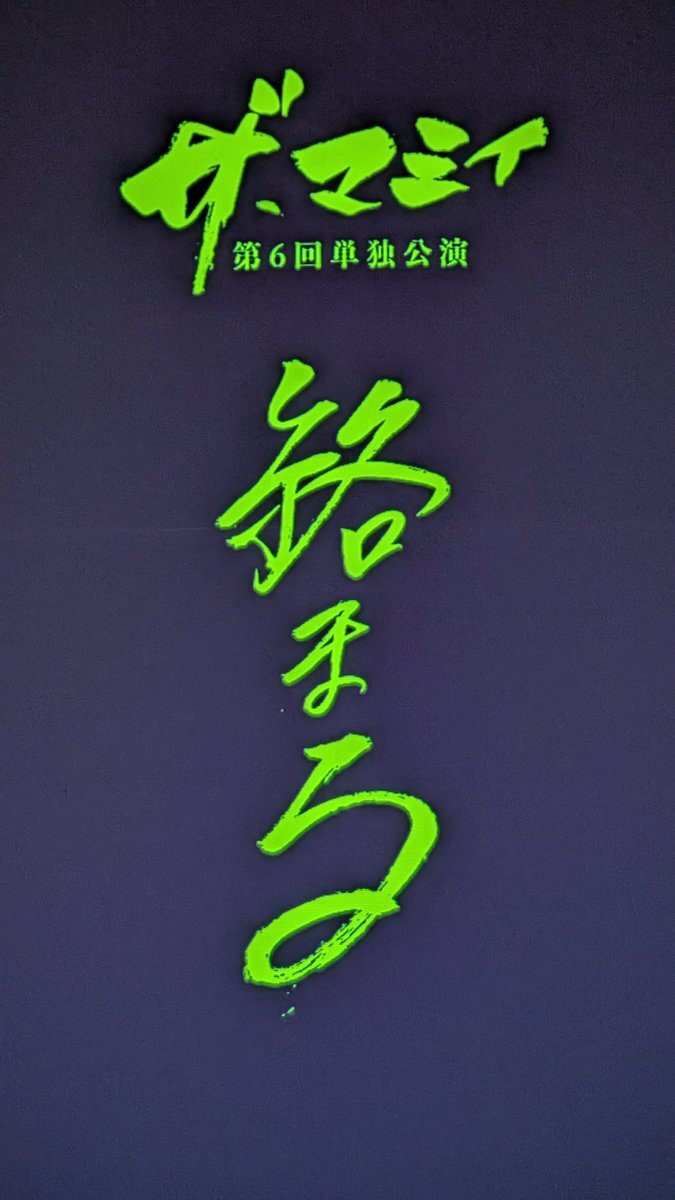 ザ・マミィ
第6回単独公演
絡まる